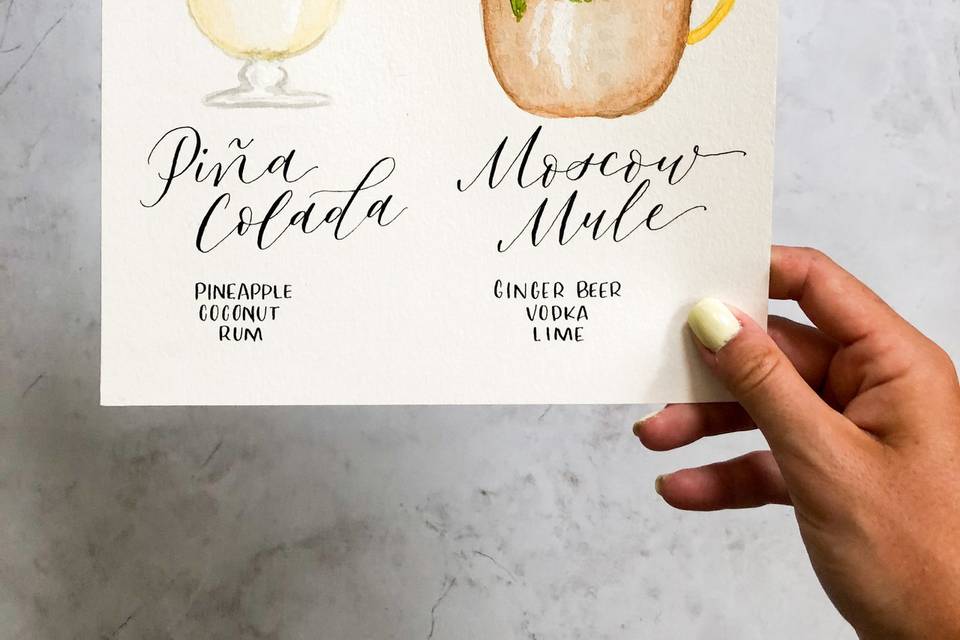 Piña
Colada
PINEAPPLE
COCONUT
RUM
Moscow
Mule
GINGER BEER
VODKA
LIME